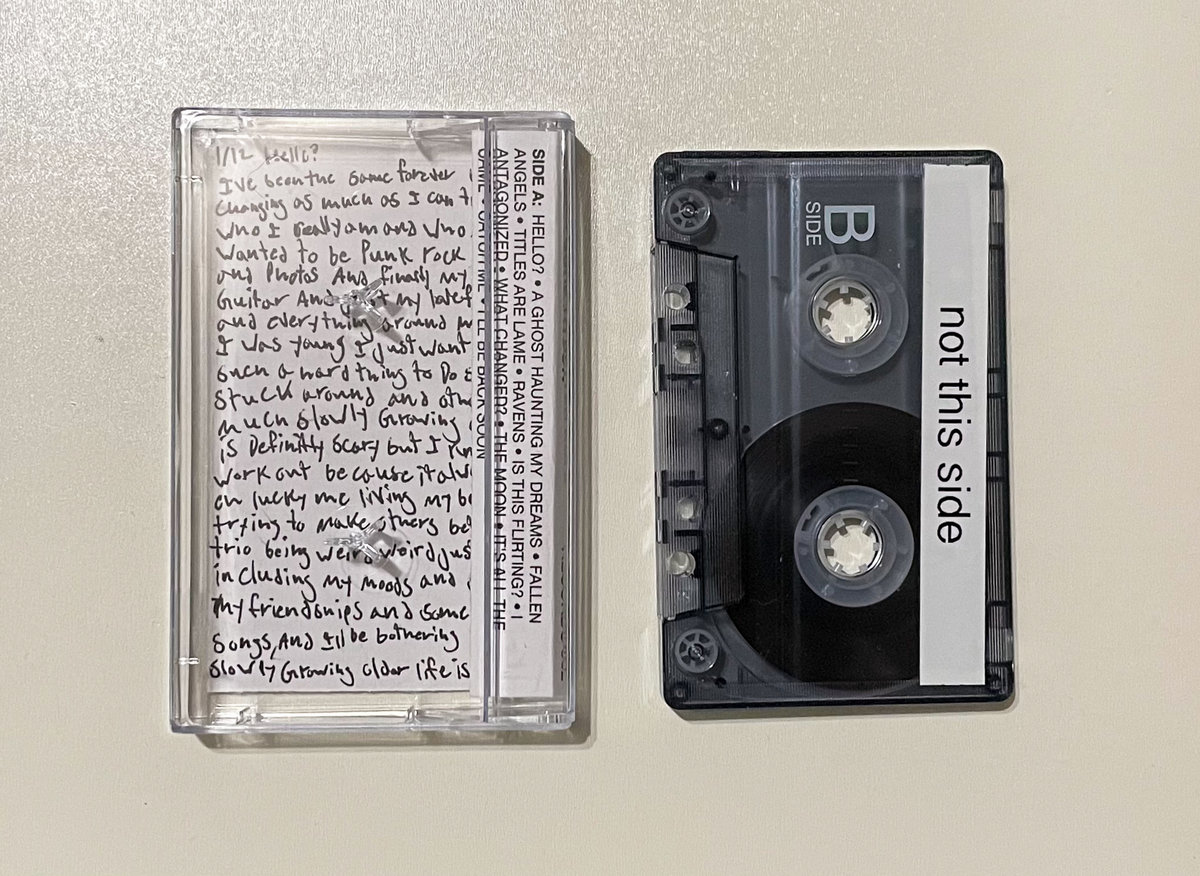 1/12 Hello?
I've been the same forever
changing as much as I can t
who I really am and who
wanted to be Punk rock
and Photos And finally my
Guitar And my latef
and everything around m
I was young I just want
such a hard thing to Do
Stuck around and oth
much slowly Growing
is Definitly scary but I
work out because it alw
on lucky me living my be
trying to make others be
trio being weird weird jus
including My Moods and
My friendships and some
Songs, And I'll be bothering
slowly Growing older life is
SIDE A: HELLO? • A GHOST HAUNTING MY DREAMS • FALLEN
ANGELS • TITLES ARE LAME • RAVENS • IS THIS FLIRTING? • I
ANTAGONIZED • WHAT CHANGED? • THE MOON • IT'S ALL THE
SAME • CATCH ME • I'LL BE BACK SOON
B
SIDE
not this side